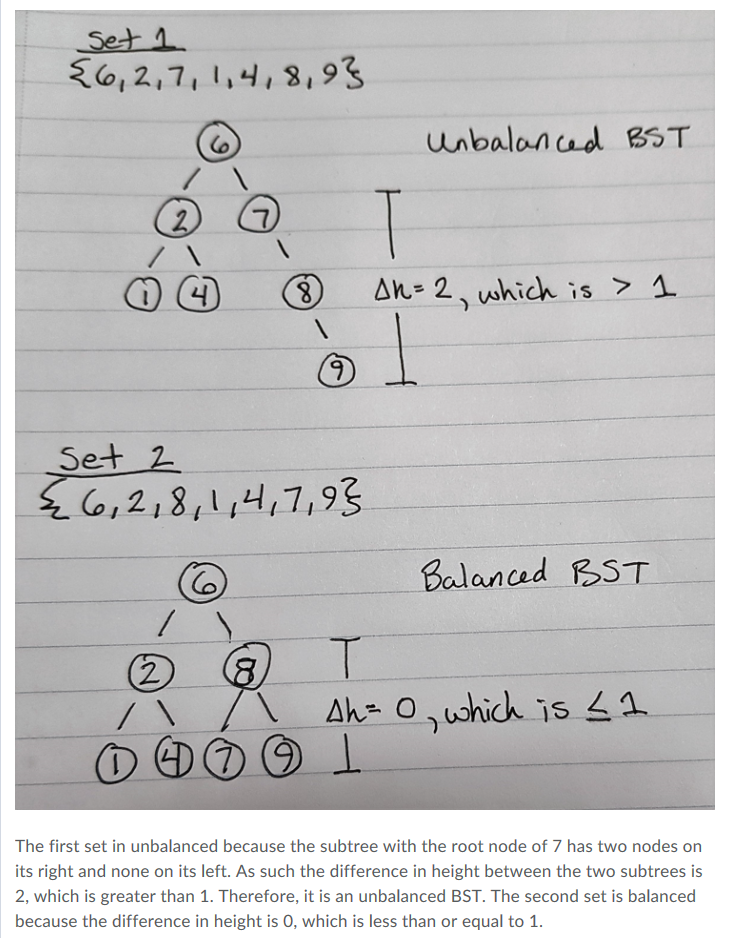 Set 1
{6,2,7,1,4,8,9}
Unbalanced BST
6
2 7
1 4 8
Δh=2, which is > 1
9
Set 2
{6,2,8,1,4,7,9}
Balanced BST
6
2 8
Δh=0, which is ≤1
1 4 7 9
The first set in unbalanced because the subtree with the root node of 7 has two nodes on
its right and none on its left. As such the difference in height between the two subtrees is
2, which is greater than 1. Therefore, it is an unbalanced BST. The second set is balanced
because the difference in height is 0, which is less than or equal to 1.